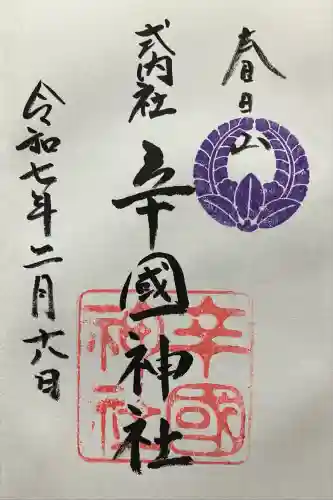 春日山
式内社
辛國神社
令和七年二月十六日
辛國
神社